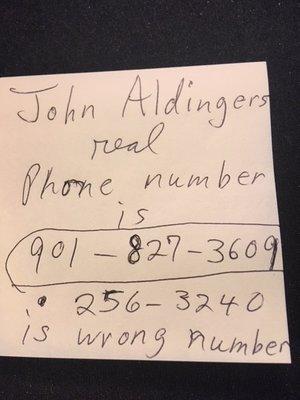 John Aldingers
real
Phone number
is
901-827-3609
• 256-3240
is wrong number